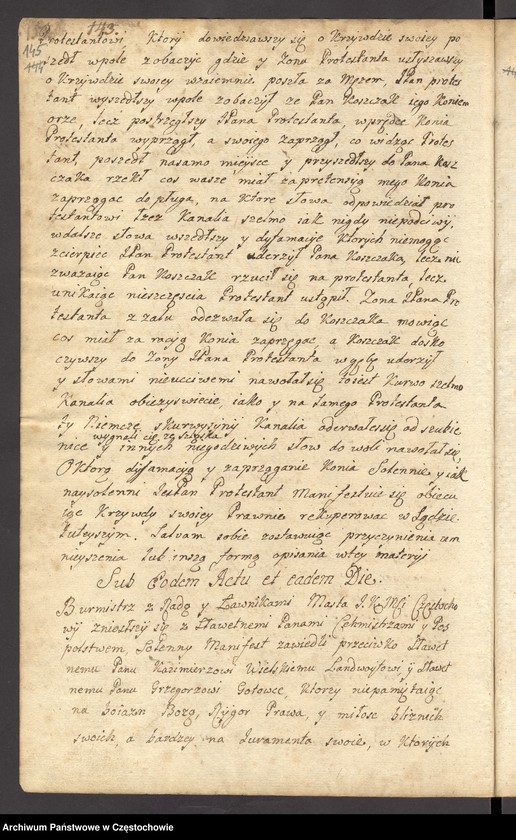 143
145
144
Protestantowi Ktory dowiedziawszy się o Krzywdzie swoiey po
szedł w pole zobaczyc gdzie y Zona Protestanta usłyszawszy
o Krzywdzie swoiey wzaiemnie poszła za Męzem, JPan protes
tant wyszedłszy w pole zobaczył ze Pan Koszczak iego Koniem
orze, lecz postrzegłszy JPana Protestanta wprędce Konia
Protestanta wyprzągł, a swoiego zaprzągł, co widząc Protes
tant, poszedł na samo mieysce y przyszedłszy do Pana Kosz
czaka rzekł cos wasze miał za pretensyą mego Konia
zaprzągac do pługa, na ktore słowa odpowiedział pro
testantowi łzez Kanalia szelmo iak nigdy niepodciwy,
w dalsze słowa wszedłszy y dyfamacije Ktorych niemogąc
zcierpiec JPan Protestant uderzył Pana Koszczaka, lecz ni
zwazaiąc Pan Koszczak rzucił się na protestanta lecz
unikaiąc nieszczęscia Protestant ustąpił. Zona JPana Pro
testanta z zalu odezwała się do Koszczaka mowiąc
cos miał za racyą Konia zaprzęgac, a Koszczak dosko
czywszy do Zony JPana Protestanta w gębę uderzył
y słowami nieuczciwemi nawołał się, łzesci Kurwo szelmo
Kanalia obieczyswiecie, iako y na samego Protestanta
Ty Niemcze skurwysynij Kanalia oderwałes się od szubie
wygnali cię ze Szląska
nice y innych niegodziwych słow do woli nawołał się,
O Ktorą dyffamacyą y zaprzęganie Konia Solennie y iak
naysolenni JestPan Protestant Manifestuie się obiecu
iąc Krzywdy swoiey Prawnie rekuperować w Sądzie
tuteyszym. Salvam sobie zostawuiąc przyczynienia um
nieyszenia lub inszą formą opisania w tey materyi
Sub Eodem Actu et eadem Die.
Burmistrz z Radą y Ławnikami Miasta J.K.Mci Częstocho
wy zniosłszy się z Sławetnemi Panami Cechmistrzami y Pos
polstwem, Solenny Manifest zawiedli przeciwko Sławet
nemu Panu Kazimierzowi Wielskiemu Landwoytowi y Sławet
nemu Panu Grzegorzowi Gotowce, Ktorzy niepamiętaiąc
na boiazn Bozą, Rygor Prawa, y miłosc bliznich
swoich, a bardzey na Juramenta swoie, w Ktorych
Archiwum Państwowe w Częstochowie